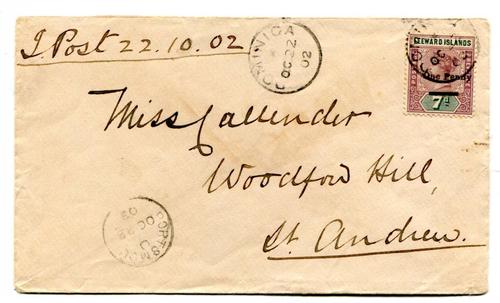 I. Post 22.10.02
DOMINICA
OC 22
02
LEEWARD ISLANDS
One Penny
7d
Miss Callender
Woodford Hill,
St. Andrew.
PORTSMOUTH
OC 22